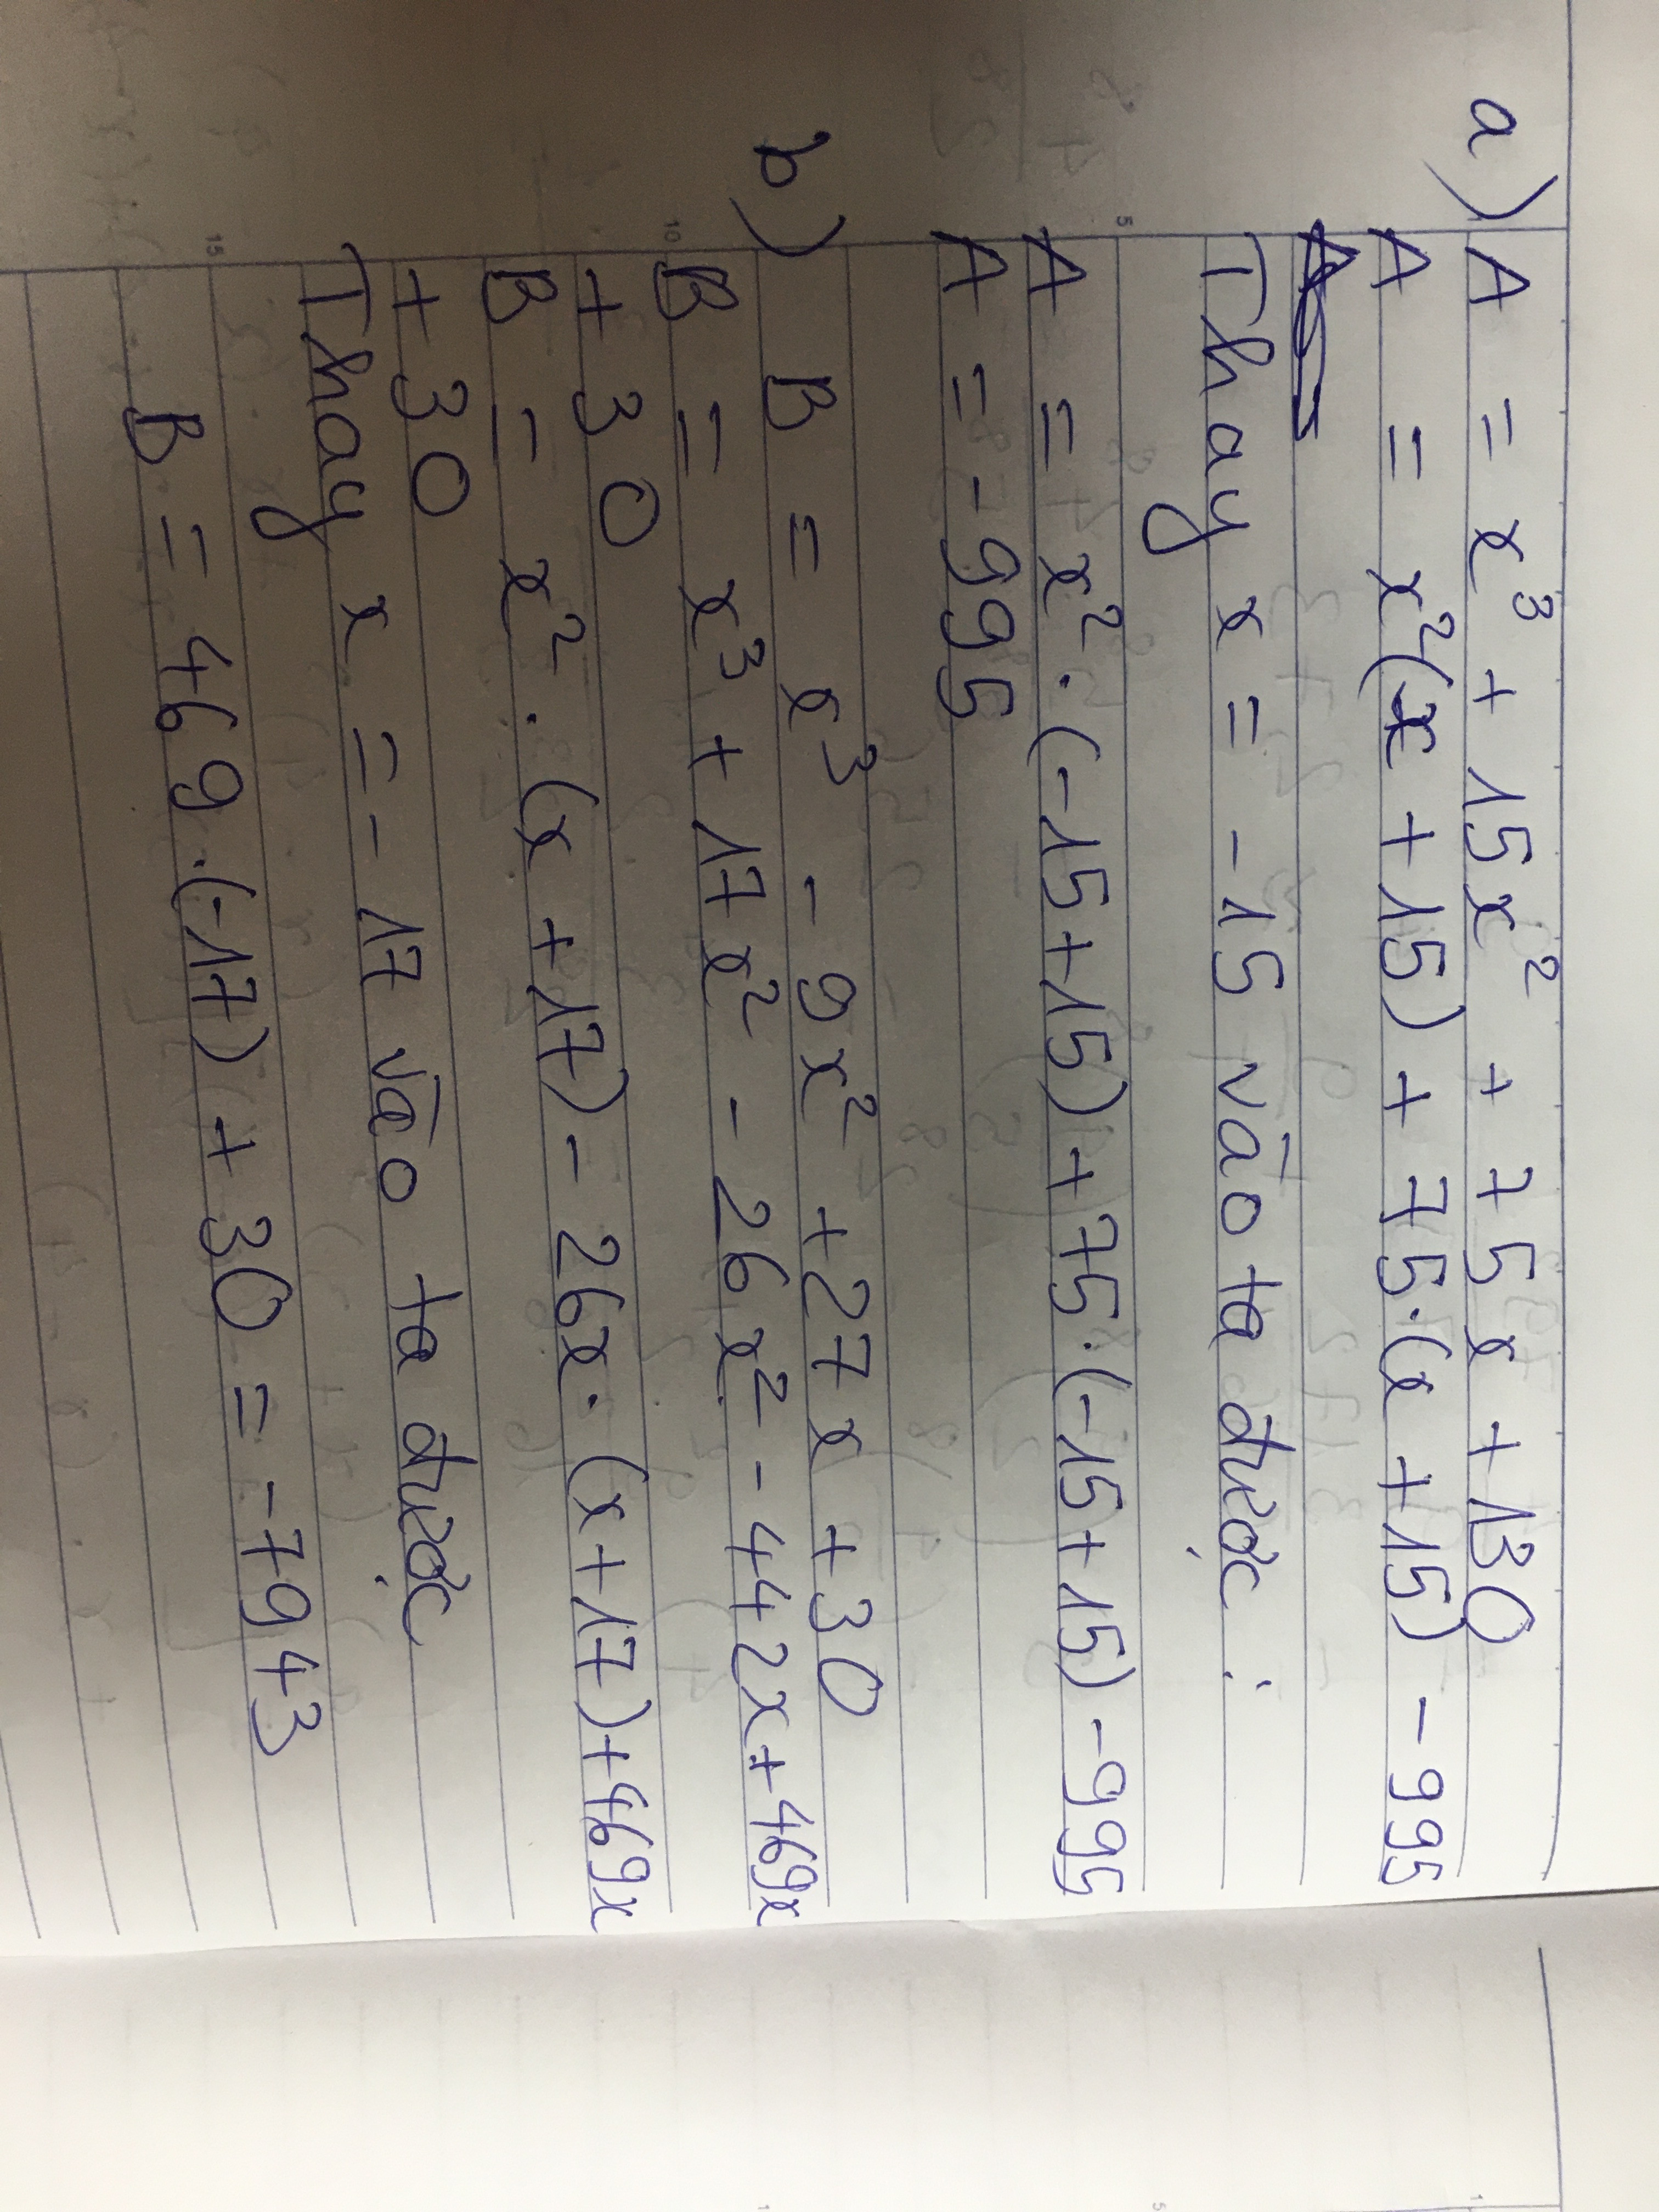 a) A = x³ + 15x² + 75x + 130
A = x²(x + 15) + 75.(x + 15) - 995
Thay x = -15 vào ta được :
A = x².(-15+15) + 75.(-15+15) - 995
A = -995
b) B = x³ - 9x² + 27x + 30
B = x³ + 17x² - 26x² - 442x + 469x
+ 30
B = x².(x + 17) - 26x.(x + 17) + 469x
+ 30
Thay x = -17 vào ta được
B = 469.(-17) + 30 = -7943